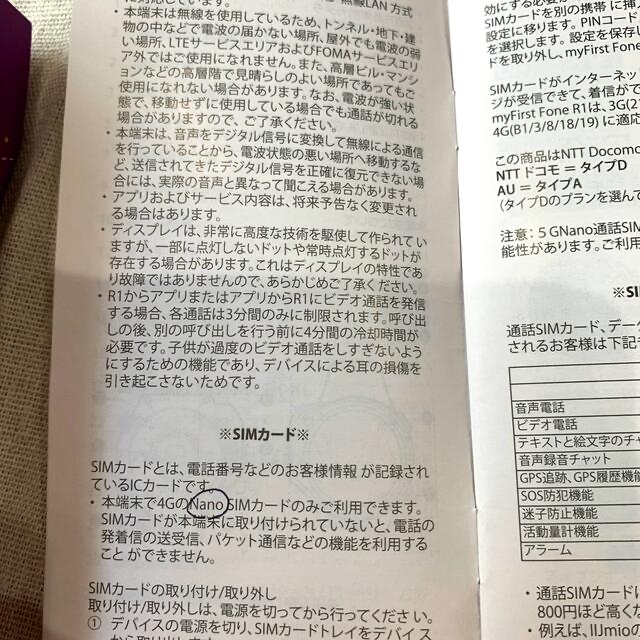 無線LAN 方式
対応しています。
・本端末は無線を使用しているため、トンネル・地下・建
物の中などで電波の届かない場所、屋外でも電波の弱
い場所、LTEサービスエリアおよびFOMAサービスエリ
ア外ではご使用になれません。また、高層ビル・マンシ
ョンなどの高層階で見晴らしのよい場所であってもご
使用になれない場合があります。なお、電波が強い状
態で、移動せずに使用している場合でも通話が切れる
場合がありますので、ご了承ください。
・本端末は、音声をデジタル信号に変換して無線による通信
を行っていることから、電波状態の悪い場所へ移動するな
ど、送信されてきたデジタル信号を正確に復元できない場
合には、実際の音声と異なって聞こえる場合があります。
・アプリおよびサービス内容は、将来予告なく変更され
る場合はあります。
・ディスプレイは、非常に高度な技術を駆使して作られてい
ますが、一部に点灯しないドットや常時点灯するドットが
存在する場合があります。これはディスプレイの特性であ
り故障ではありませんので、あらかじめご了承ください。
・R1からアプリまたはアプリからR1にビデオ通話を発信
する場合、各通話は3分間のみに制限されます。呼び出
しの後、別の呼び出しを行う前に4分間の冷却時間が
必要です。子供が過度のビデオ通話をしすぎないよう
にするための機能であり、デバイスによる耳の損傷を
引き起こさないためです。
※SIMカード※
SIMカードとは、電話番号などのお客様情報 が記録され
ているICカードです。
・本端末で4GのNano SIMカードのみご利用できます。
SIMカードが本端末に取り付けられていないと、電話の
発着信の送受信、パケット通信などの機能を利用する
こと ができません。
SIMカードの取り付け/取り外し
取り付け/取り外しは、電源を切ってから行ってください。
① デバイスの電源を切り、SIMカードトレイをデバイス
から取り出します
効にする必要が
SIMカードを別の携帯 に挿
設定に移ります。PINコード
を選択します。 設定を保存し
ドを取り外し、myFirst Fone
SIMカードがインターネッ
ジが受信できて、着信がで
myFirst Fone R1は、3G(2
4G(B1/3/8/18/19) に適応
この商品はNTT Docomo
NTT ドコモ = タイプD
AU = タイプA
(タイプDのプランを選んで
注意：5 GNano通話SIM
能性があります。ご利用
※SI
通話SIMカード、データ
されるお客様は下記
音声電話
ビデオ電話
テキストと絵文字のチャ
音声録音チャット
GPS追跡、GPS履歴機能
SOS防犯機能
迷子防止機能
活動量計機能
アラーム
・通話SIMカードに
800円ほど高くな
・例えば、IIJmioの